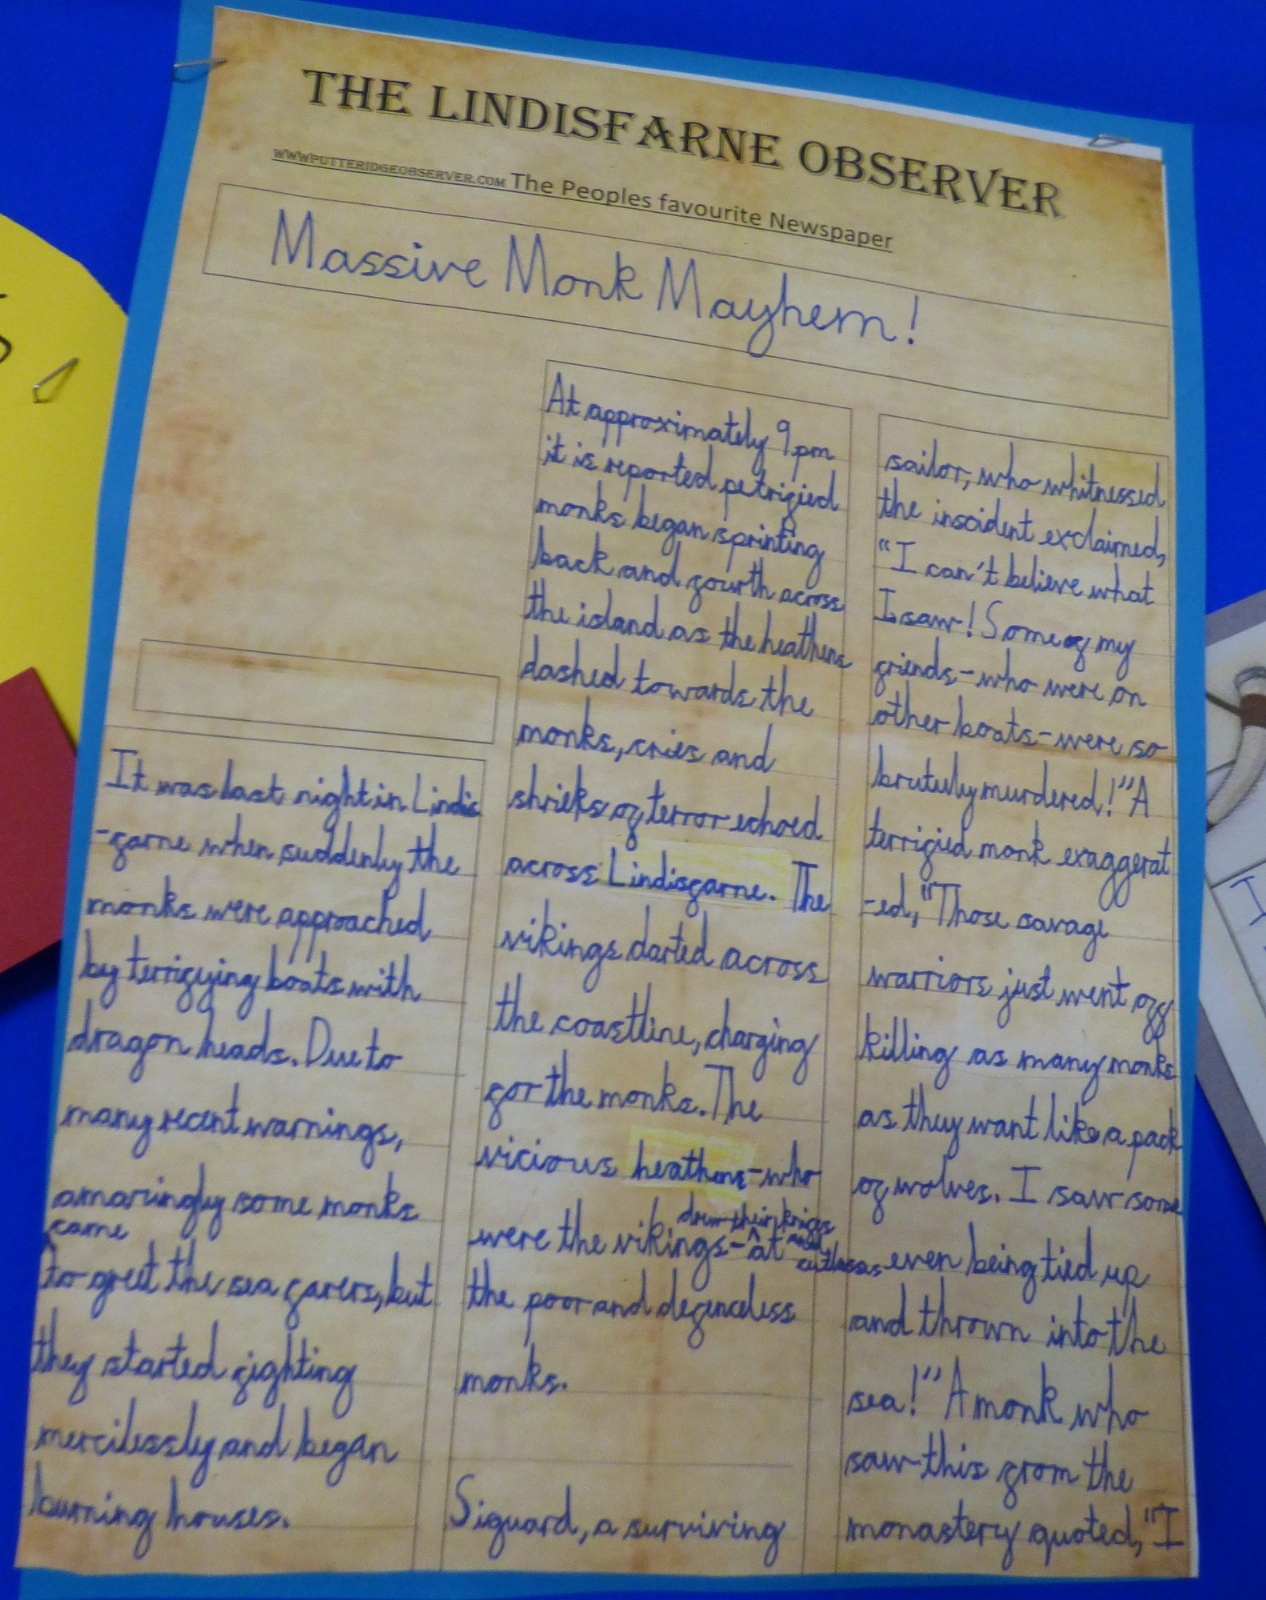 THE LINDISFARNE OBSERVER
WWW.PUTTERIDGEOBSERVER.COM The Peoples favourite Newspaper
Massive Monk Mayhem!
It was last night in Lindis
-farne when suddenly the
monks were approached
by terrifying boats with
dragon heads. Due to
many recent warnings,
amazingly some monks
came
to greet the sea farers, but
they started fighting
mercilessly and began
burning houses.
At approximately 9pm
it is reported petrified
monks began sprinting
back and fourth across
the island as the heathens
dashed towards the
monks, cries and
shrieks of terror echoed
across Lindisfarne. The
vikings darted across
the coastline, charging
for the monks. The
vicious heathens-who
drew their knives
were the vikings-^at and
cutlasses
the poor and defenceless
monks.
Siguard, a surviving
sailor, who whitnessed
the inscident exclaimed,
"I can't believe what
I saw! Some of my
friends-who were on
other boats-were so
brutuly murdered!" A
terrified monk exaggerat
-ed, "Those savage
warriors just went off
killing as many monks
as they want like a pack
of wolves. I saw some
even being tied up
and thrown into the
sea!" A monk who
saw this from the
monastery quoted, "I